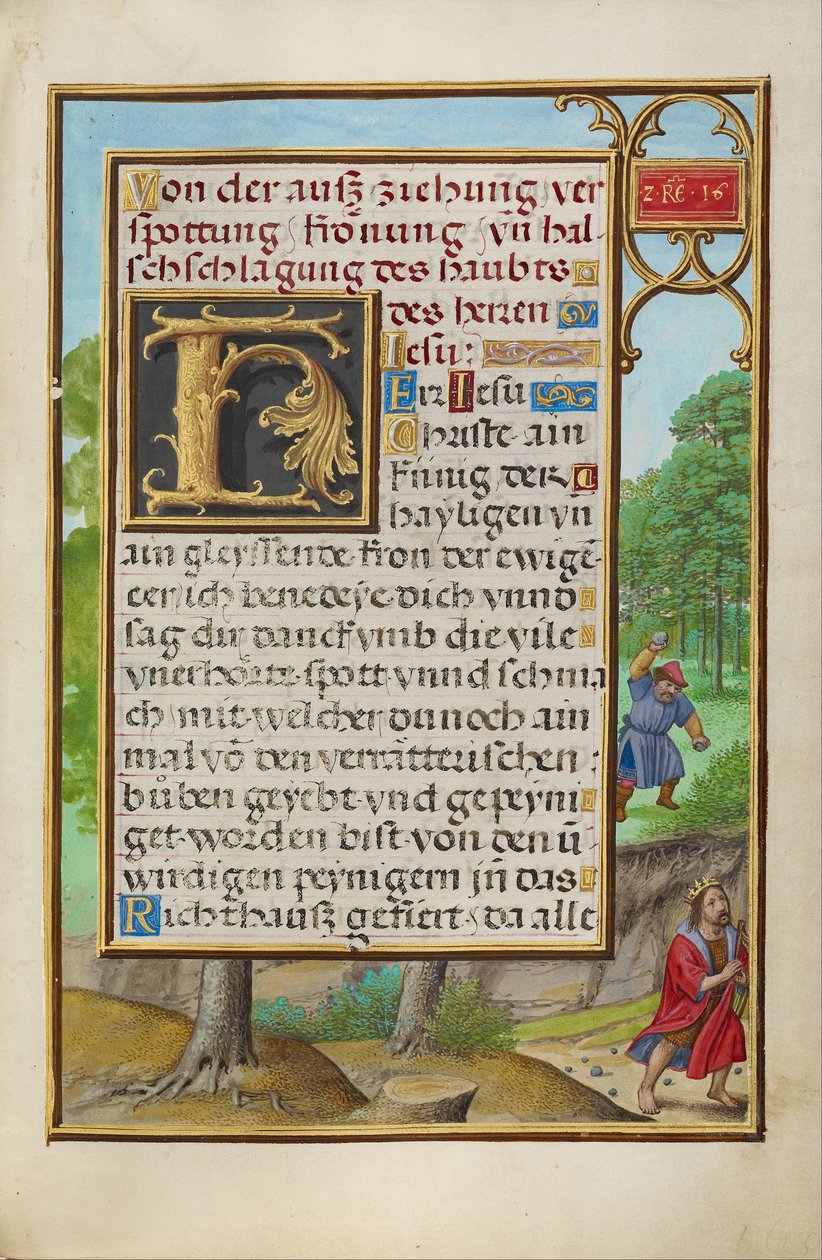 ·Z·RE·16·
Von der ausz ziehung ver
spottung / krönung / vn̄ hal-
schschlagung des haubts
des herren
Iesu:
Err Iesu
Christe· ain
künig der
hayligen vn̄
ain gleyssende· kron der ewigē·
eer / ich benedeye· dich vnnd
sag dir danck vmb die vile
vnerhörte· spott· vnnd schma
ch / mit· welcher du noch ain
mal vō den verrätterischen:
bůben geyebt· vnd gepeyni
get· worden bist· von den ū-
wirdigen peynigern jn̄ das
Richthausz gefiert / da alle